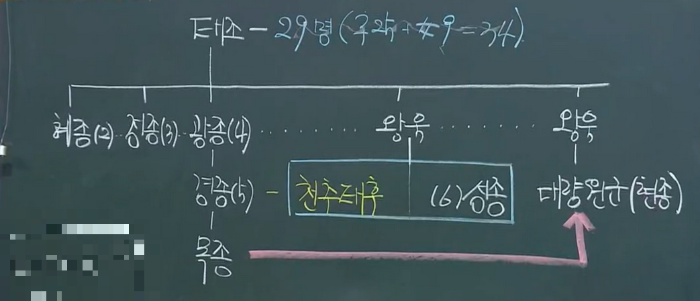 태조 - 29명 (3
혜종(2) 정종(3) 광종(4) 왕욱 왕욱
경종(5) - 천추태후 (6)성종 대량원군(현종)
목종